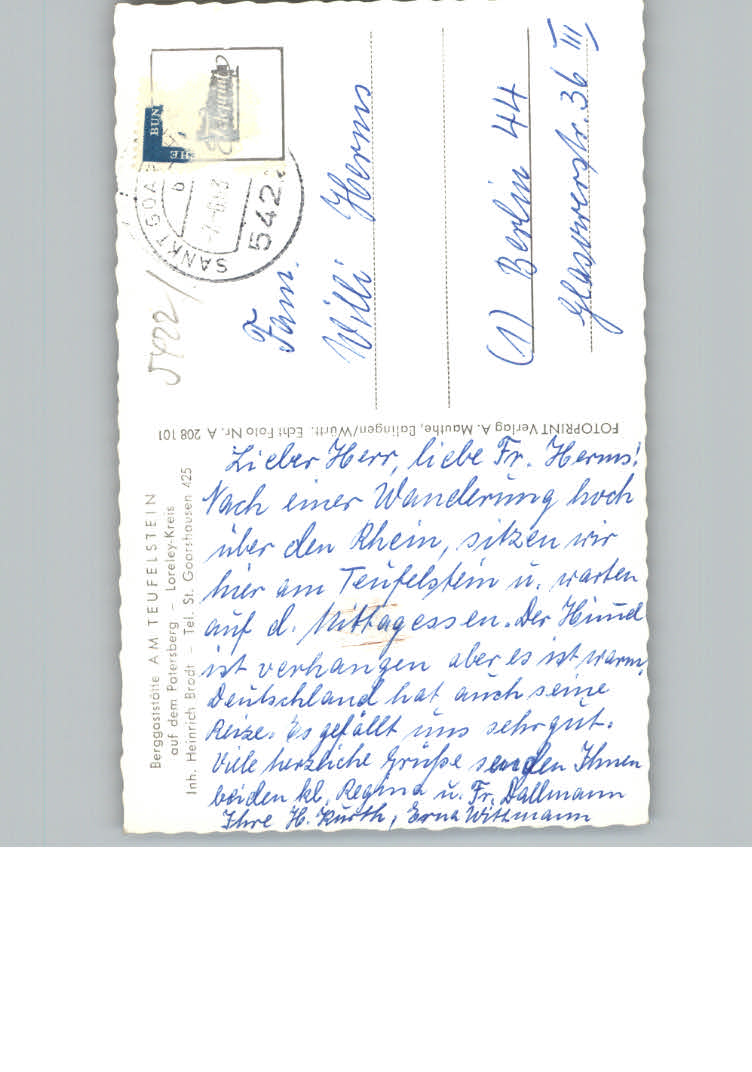 Berggaststätte AM TEUFELSTEIN
auf dem Patersberg – Loreley-Kreis
Inh. Heinrich Brodt – Tel. St. Goarshausen 425
Lieber Herr, liebe Fr. Herms!
Nach einer Wanderung hoch
über den Rhein, sitzen wir
hier am Teufelstein u. warten
auf d. Mittagessen. Der Himmel
ist verhangen aber es ist warm,
Deutschland hat auch seine
Reize. Es gefällt uns sehr gut.
Viele herzliche Grüße senden Ihnen
beiden kl. Regina u. Fr. Dallmann
Ihre H. Kurth, Erna Witzmann
FOTOPRINT Verlag A. Mauthe, Balingen/Württ. Echt Foto Nr. A 208 101
BUN
CHE
SANKT GOAR
542
Fam.
Willi Herms
(1) Berlin 44
36 III